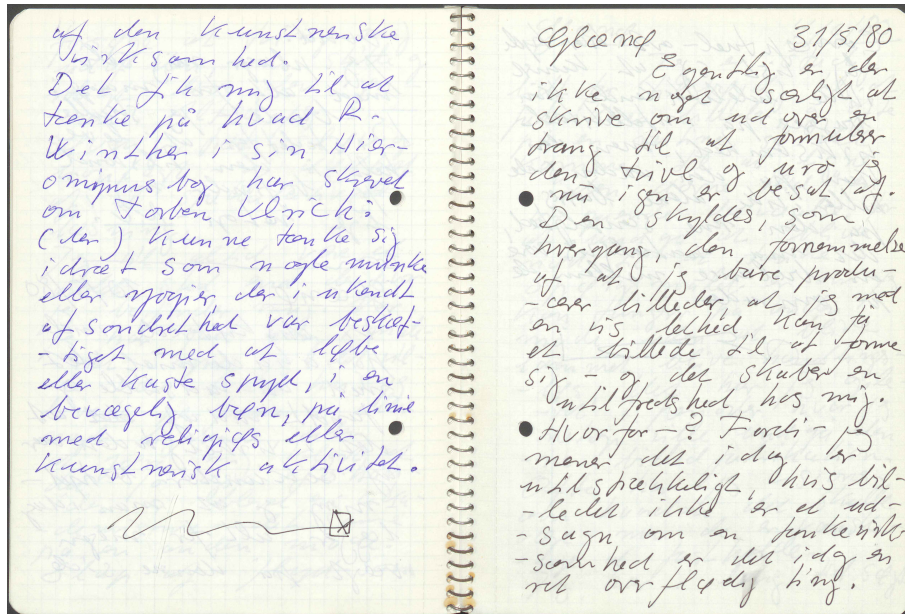 af den kunstneriske
virksomhed.
Det fik mig til at
tænke på hvad R.
Winther i sin Hier-
onymus bog har skrevet
om Torben Ulrich:
(der) kunne tænke sig
idræt som nogle munke
eller yogier, der i ukendt
afsondrethed var beskæf-
-tiget med at løbe
eller kaste spyd, i en
bevægelig bøn, på linie
med religiøs eller
kunstnerisk aktivitet.
Gland 31/5/80
Egentlig er der
ikke noget særligt at
skrive om ud over en
trang til at formulere
den tvivl og uro jeg
nu igen er besat af.
Den skyldes, som
hvergang, den fornemmelse
af at jeg bare produ-
-cerer billeder, at jeg med
en vis lethed kan få
et billede til at forme
sig - og det skaber en
utilfredshed hos mig.
Hvorfor-? Fordi- jeg
mener det idag er
utilstrækkeligt, hvis bil-
-ledet ikke er et ud-
-sagn om en tankevirk-
-somhed er det idag en
ret overflødig ting.